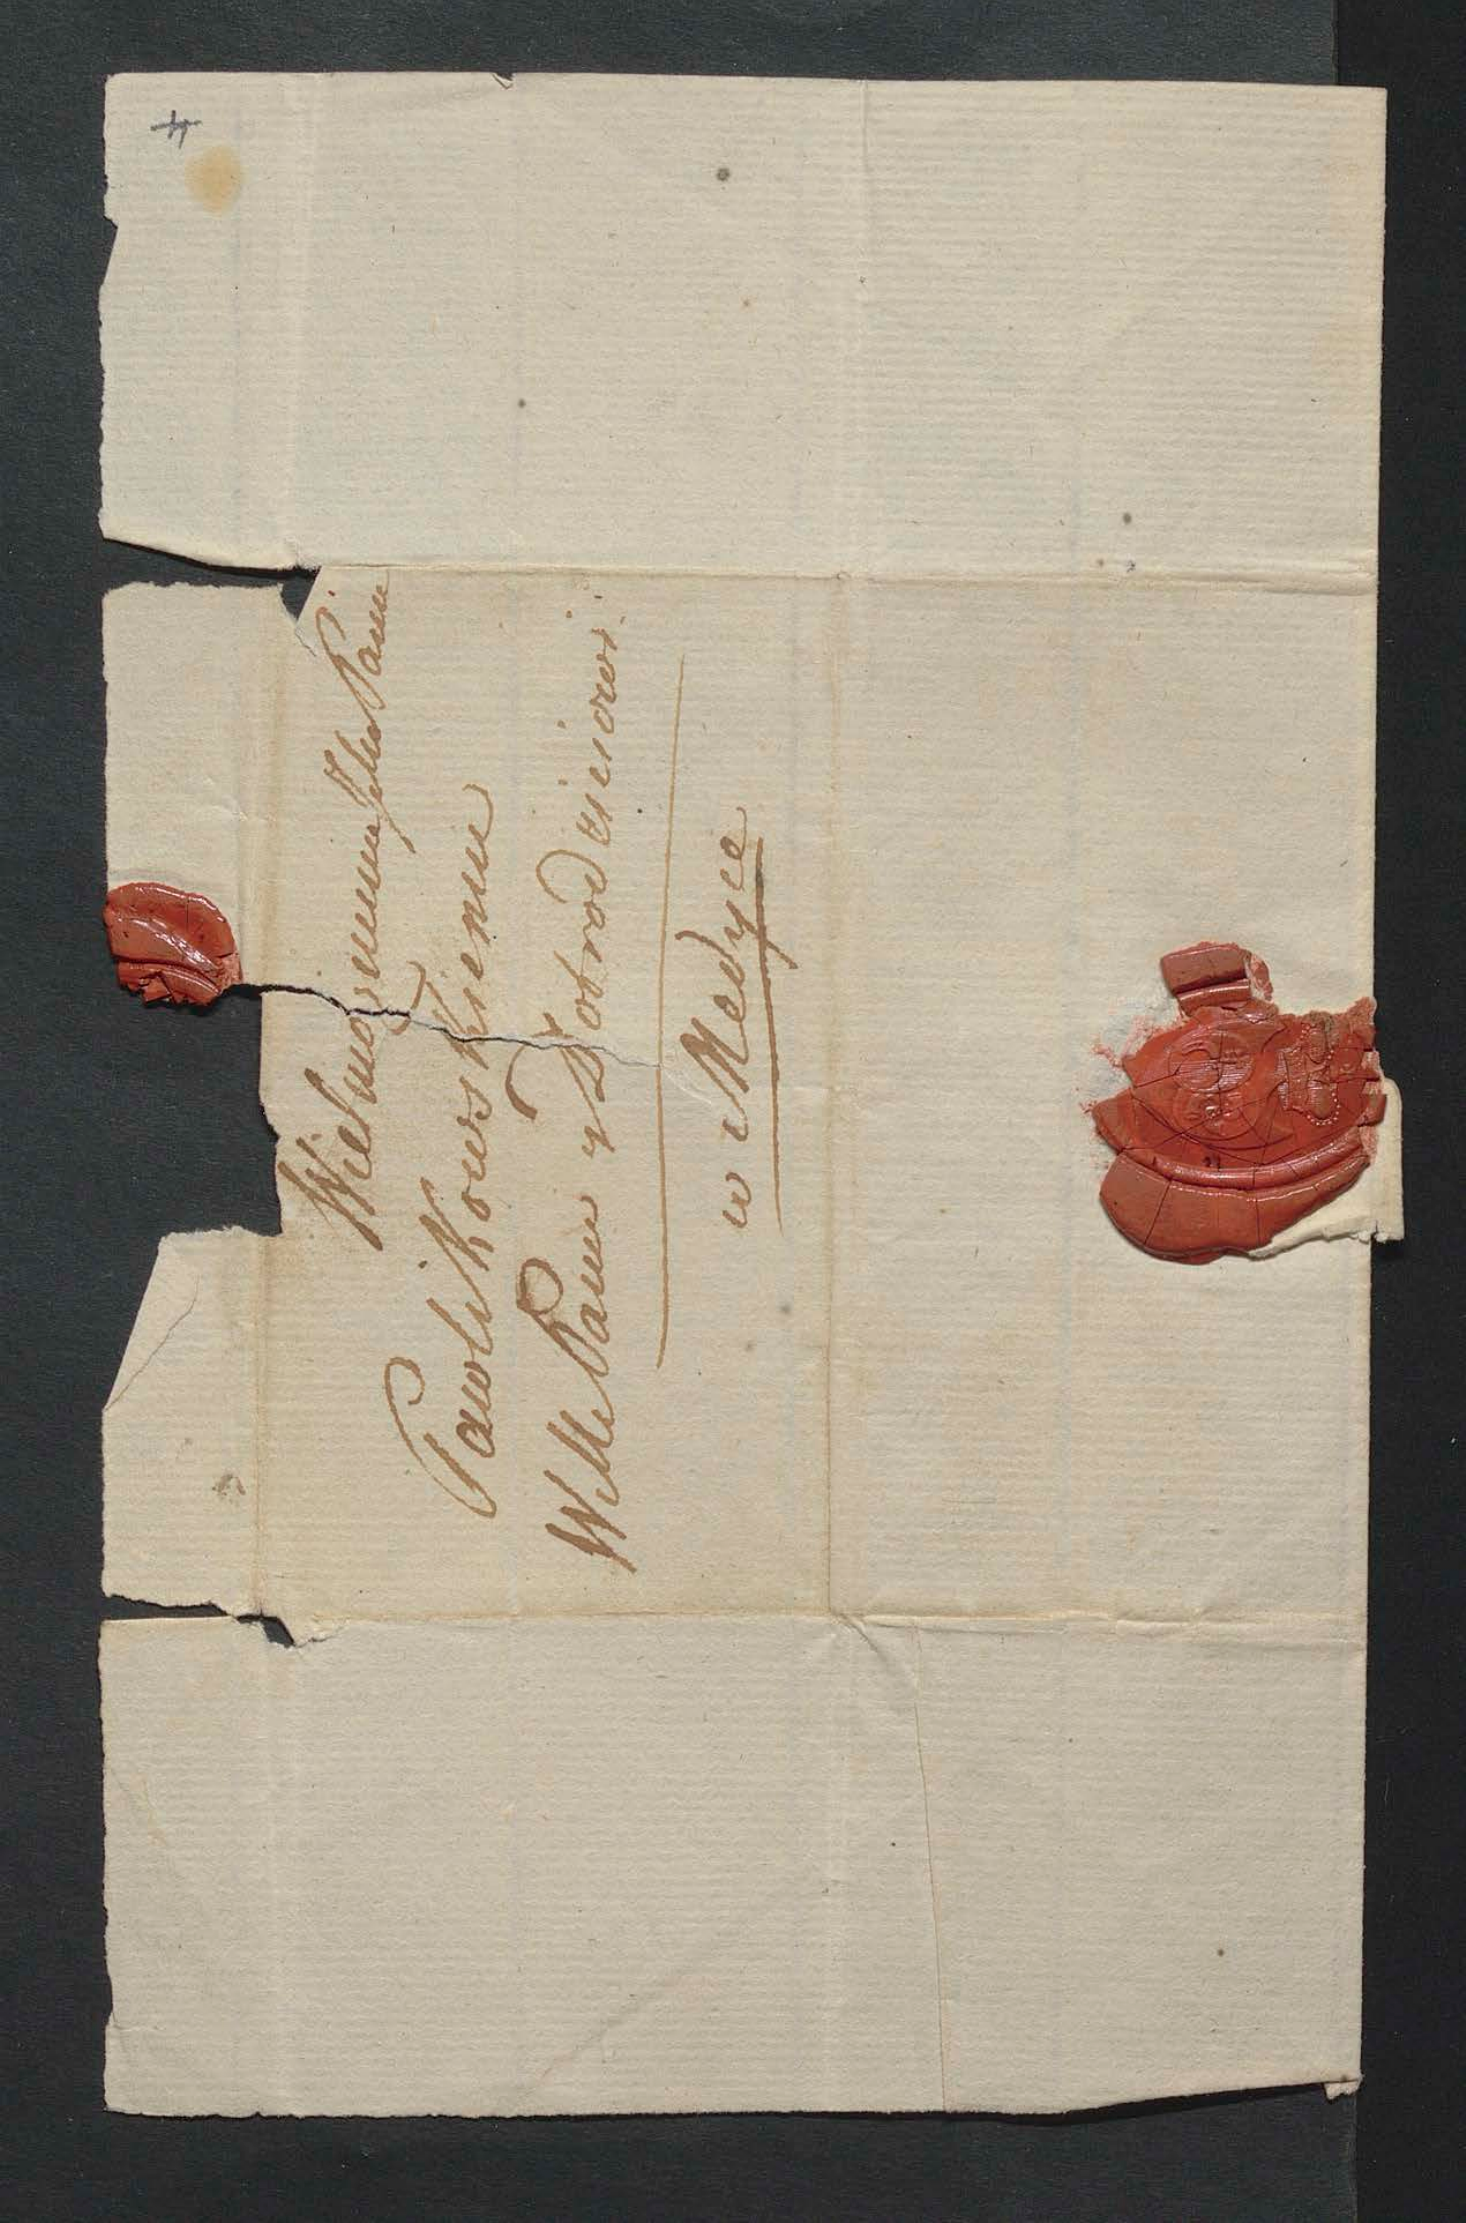 Wielmożnemu Jmci Panu
Pawlikowskiemu
Wlu Panu y Dobrodziejowi
w Medyce